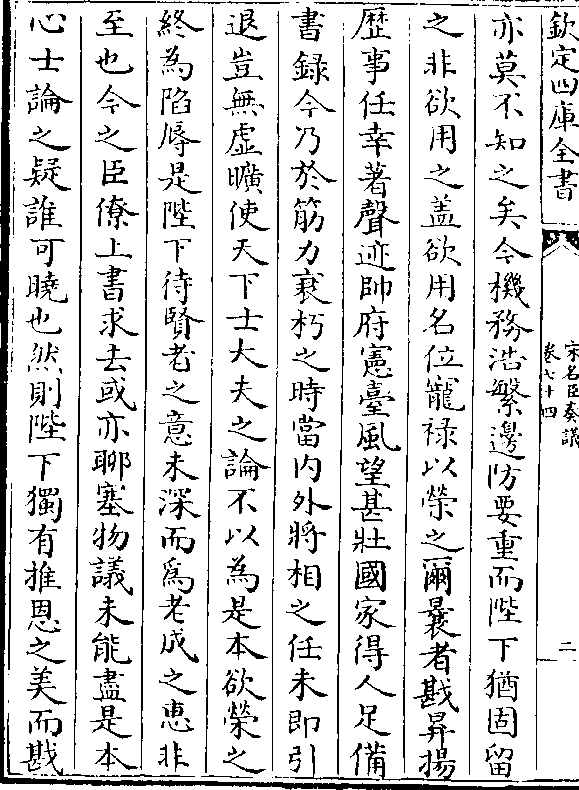 欽定四庫全書
宋名臣奏議
卷七十四
二
亦莫不知之矣今機務浩繁邊防要重而陛下猶固留
之非欲用之盖欲用名位寵禄以榮之爾曩者戡昇揚
歴事任幸著聲迹帥府憲臺風望甚壯國家得人足備
書録今乃於筋力衰朽之時當内外將相之任未即引
退豈無虚曠使天下士大夫之論不以為是本欲榮之
終為陷辱是陛下待賢老之意未深而爲老成之恵非
至也今之臣僚上書求去或亦聊塞物議未能盡是本
心士論之疑誰可曉也然則陛下獨有推恩之美而戡